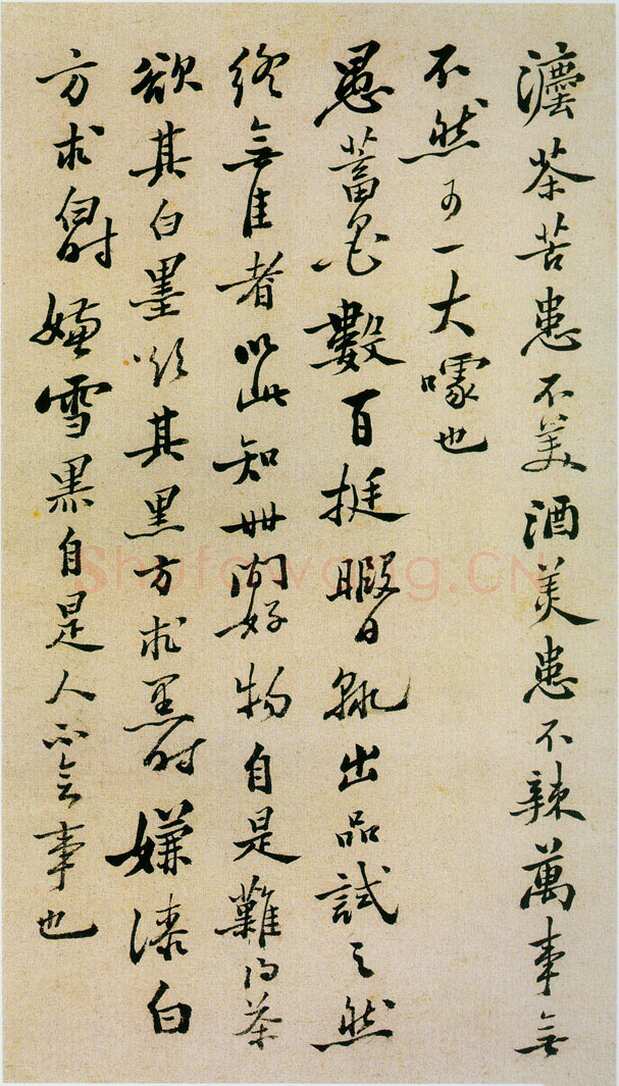 灋茶苦患不美酒美患不辣萬事無
不然可一大噱也
愚蓄墨數百挺暇日輒出品試之然
終無佳者以此知世間好物自是難得茶
欲其白墨欲其黑方求黑時嫌漆白
方求白時嫌雪黑自是人不會事也
Shufawang.CN